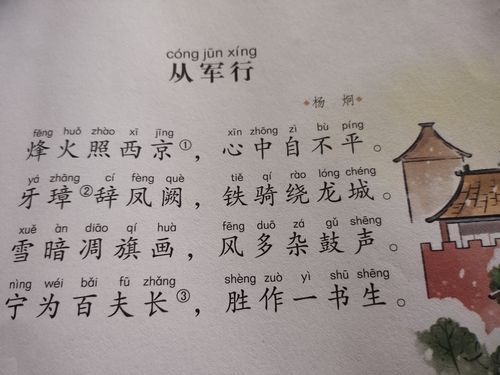 cóng jūn xíng
从军行
杨炯
fēng huǒ zhào xī jīng xīn zhōng zì bù píng
烽火照西京①，心中自不平。
yá zhāng cí fèng què tiě qí rào lóng chéng
牙璋②辞凤阙，铁骑绕龙城。
xuě àn diāo qí huà fēng duō zá gǔ shēng
雪暗凋旗画，风多杂鼓声。
nìng wéi bǎi fū zhǎng shèng zuò yì shū shēng
宁为百夫长③，胜作一书生。